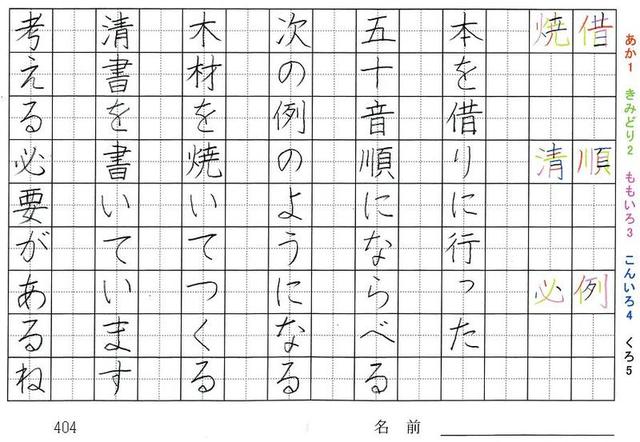 あか1 きみどり2 ももいろ3 こんいろ4 くろ5
借 順 例
焼 清 必
本を借りに行った
五十音順にならべる
次の例のようになる
木材を焼いてつくる
清書を書いています
考える必要があるね
404
名前